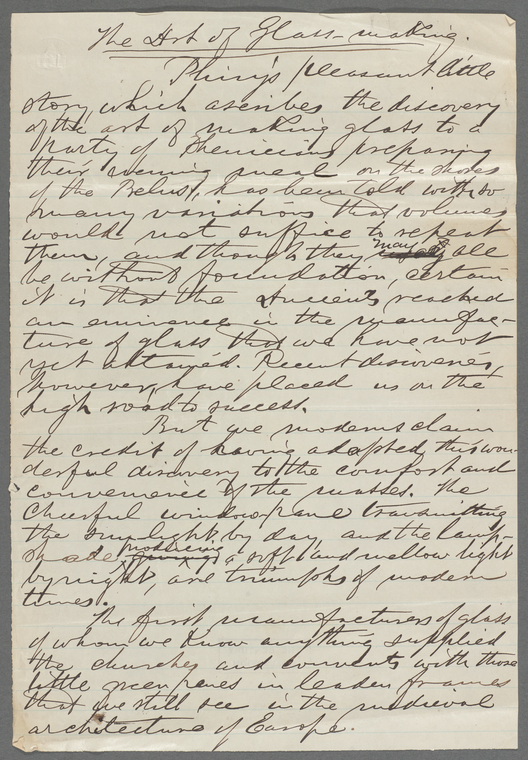 The Art of Glass-making.
Pliny's pleasant little
story, which ascribes the discovery
of the art of making glass to a
party of Phenicians preparing
their evening meal on the shores
of the Belus, has been told with so
many variations that volumes
would not suffice to repeat
them, and though they may all
be without foundation, certain
it is that the Ancients reached
an eminence in the manufac-
ture of glass that we have not
yet attained. Recent discoveries,
however, have placed us on the
high road to success.
But we moderns claim
the credit of having adapted this won-
derful discovery to the comfort and
convenience of the masses. The
cheerful window pane transmitting
the sunlight by day, and the lamp-
shade, producing a soft and mellow light
by night, are triumphs of modern
times.
The first manufacturers of glass
of whom we know anything supplied
the churches and convents with those
little green panes in leaden frames
that we still see in the medieval
architecture of Europe.